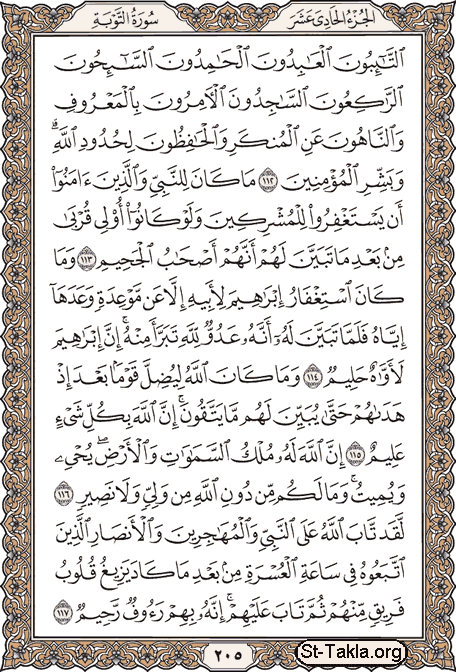 الجُزْءُ الحَادِي عَشَرَ
سُورَةُ التَّوْبَةِ
التَّٰٓئِبُونَ الْعَٰبِدُونَ الْحَٰمِدُونَ السَّٰٓئِحُونَ
الرَّٰكِعُونَ السَّٰجِدُونَ الْءَامِرُونَ بِالْمَعْرُوفِ
وَالنَّاهُونَ عَنِ الْمُنكَرِ وَالْحَٰفِظُونَ لِحُدُودِ اللَّهِ ۗ
وَبَشِّرِ الْمُؤْمِنِينَ ١١٢ مَا كَانَ لِلنَّبِيِّ وَالَّذِينَ ءَامَنُوٓا
أَن يَسْتَغْفِرُوا لِلْمُشْرِكِينَ وَلَوْ كَانُوٓا أُولِي قُرْبَىٰ
مِنۢ بَعْدِ مَا تَبَيَّنَ لَهُمْ أَنَّهُمْ أَصْحَٰبُ الْجَحِيمِ ١١٣ وَمَا
كَانَ اسْتِغْفَارُ إِبْرَٰهِيمَ لِأَبِيهِ إِلَّا عَن مَّوْعِدَةٍ وَعَدَهَآ
إِيَّاهُ فَلَمَّا تَبَيَّنَ لَهُۥٓ أَنَّهُۥ عَدُوٌّ لِّلَّهِ تَبَرَّأَ مِنْهُ ۚ إِنَّ إِبْرَٰهِيمَ
لَأَوَّٰهٌ حَلِيمٌ ١١٤ وَمَا كَانَ اللَّهُ لِيُضِلَّ قَوْمًۢا بَعْدَ إِذْ
هَدَىٰهُمْ حَتَّىٰ يُبَيِّنَ لَهُم مَّا يَتَّقُونَ ۚ إِنَّ اللَّهَ بِكُلِّ شَيْءٍ
عَلِيمٌ ١١٥ إِنَّ اللَّهَ لَهُۥ مُلْكُ السَّمَٰوَٰتِ وَالْأَرْضِ ۖ يُحْيِۦ
وَيُمِيتُ ۚ وَمَا لَكُم مِّن دُونِ اللَّهِ مِن وَلِيٍّ وَلَا نَصِيرٍ ١١٦
لَّقَد تَّابَ اللَّهُ عَلَى النَّبِيِّ وَالْمُهَٰجِرِينَ وَالْأَنصَارِ الَّذِينَ
اتَّبَعُوهُ فِي سَاعَةِ الْعُسْرَةِ مِنۢ بَعْدِ مَا كَادَ يَزِيغُ قُلُوبُ
فَرِيقٍ مِّنْهُمْ ثُمَّ تَابَ عَلَيْهِمْ ۚ إِنَّهُۥ بِهِمْ رَءُوفٌ رَّحِيمٌ ١١٧
٢٠٥
St-Takla.org